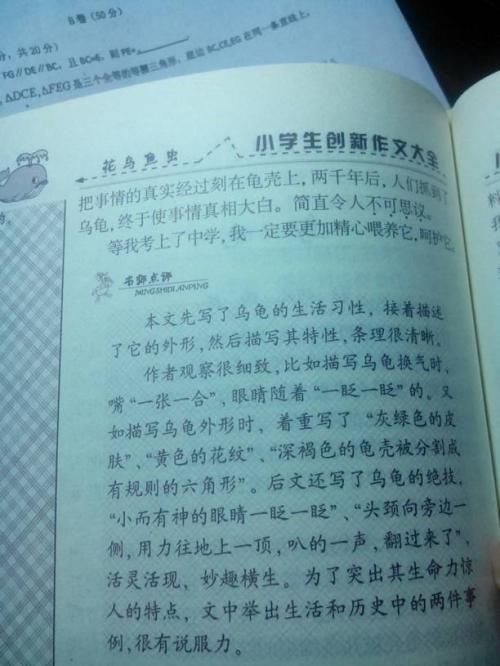 B卷(50分)
分，共20分）
FG∥DE∥BC，且BC=6，则PE=
，△DCE，△FEG是三个全等的等腰三角形，底边BC,CE,EG在同一条直线上，
花鸟鱼虫
小学生创新作文大全
把事情的真实经过刻在龟壳上，两千年后，人们抓到了
乌龟，终于使事情真相大白。简直令人不可思议。
等我考上了中学，我一定要更加精心喂养它，呵护它。
名师点评
MINGSHIDIANPING
本文先写了乌龟的生活习性，接着描述
了它的外形，然后描写其特性，条理很清晰。
作者观察很细致，比如描写乌龟换气时，
嘴“一张一合”，眼睛随着“一眨一眨”的。又
如描写乌龟外形时，着重写了“灰绿色的皮
肤”、“黄色的花纹”、“深褐色的龟壳被分割成
有规则的六角形”。后文还写了乌龟的绝技，
“小而有神的眼睛一眨一眨”、“头颈向旁边一
侧，用力往地上一顶，叭的一声，翻过来了”，
活灵活现，妙趣横生。为了突出其生命力惊
人的特点，文中举出生活和历史中的两件事
例，很有说服力。